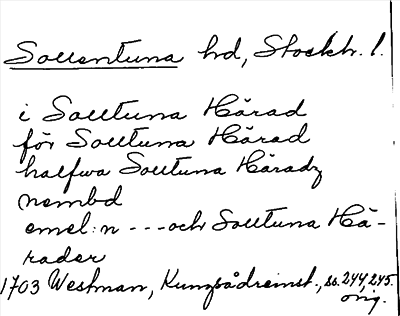 Sollentuna hd, Stockh. l.
i Solltuna Härad
för Solltuna Härad
halfwa Solltuna Häradz
nembd
emel:n --- och Solltuna Hä-
rader
1703 Westman, Kungsådreinst., ss. 244, 245.
orig.